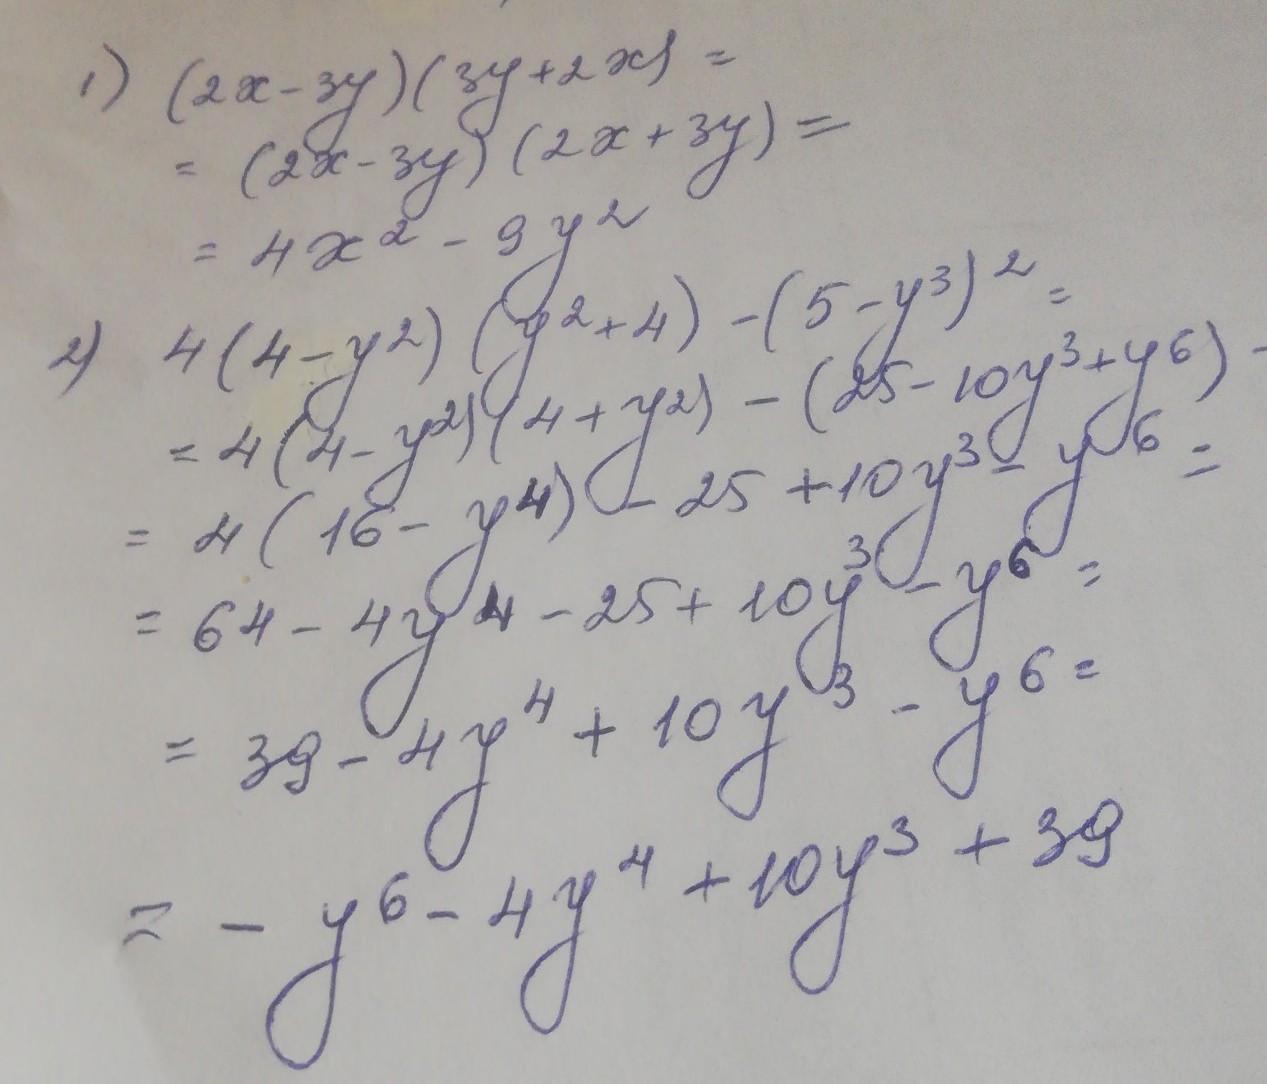 1) (2x-3y)(3y+2x)=
= (2x-3y)(2x+3y)=
= 4x² - 9y²
2) 4(4-y²)(y²+4) -(5-y³)²=
= 4(4-y²)(4+y²) - (25-10y³+y⁶) -
= 4(16-y⁴) - 25 +10y³- y⁶ =
= 64 - 4y⁴ - 25 + 10y³ - y⁶ =
= 39 - 4y⁴ + 10y³ - y⁶ =
= - y⁶ - 4y⁴ + 10y³ + 39